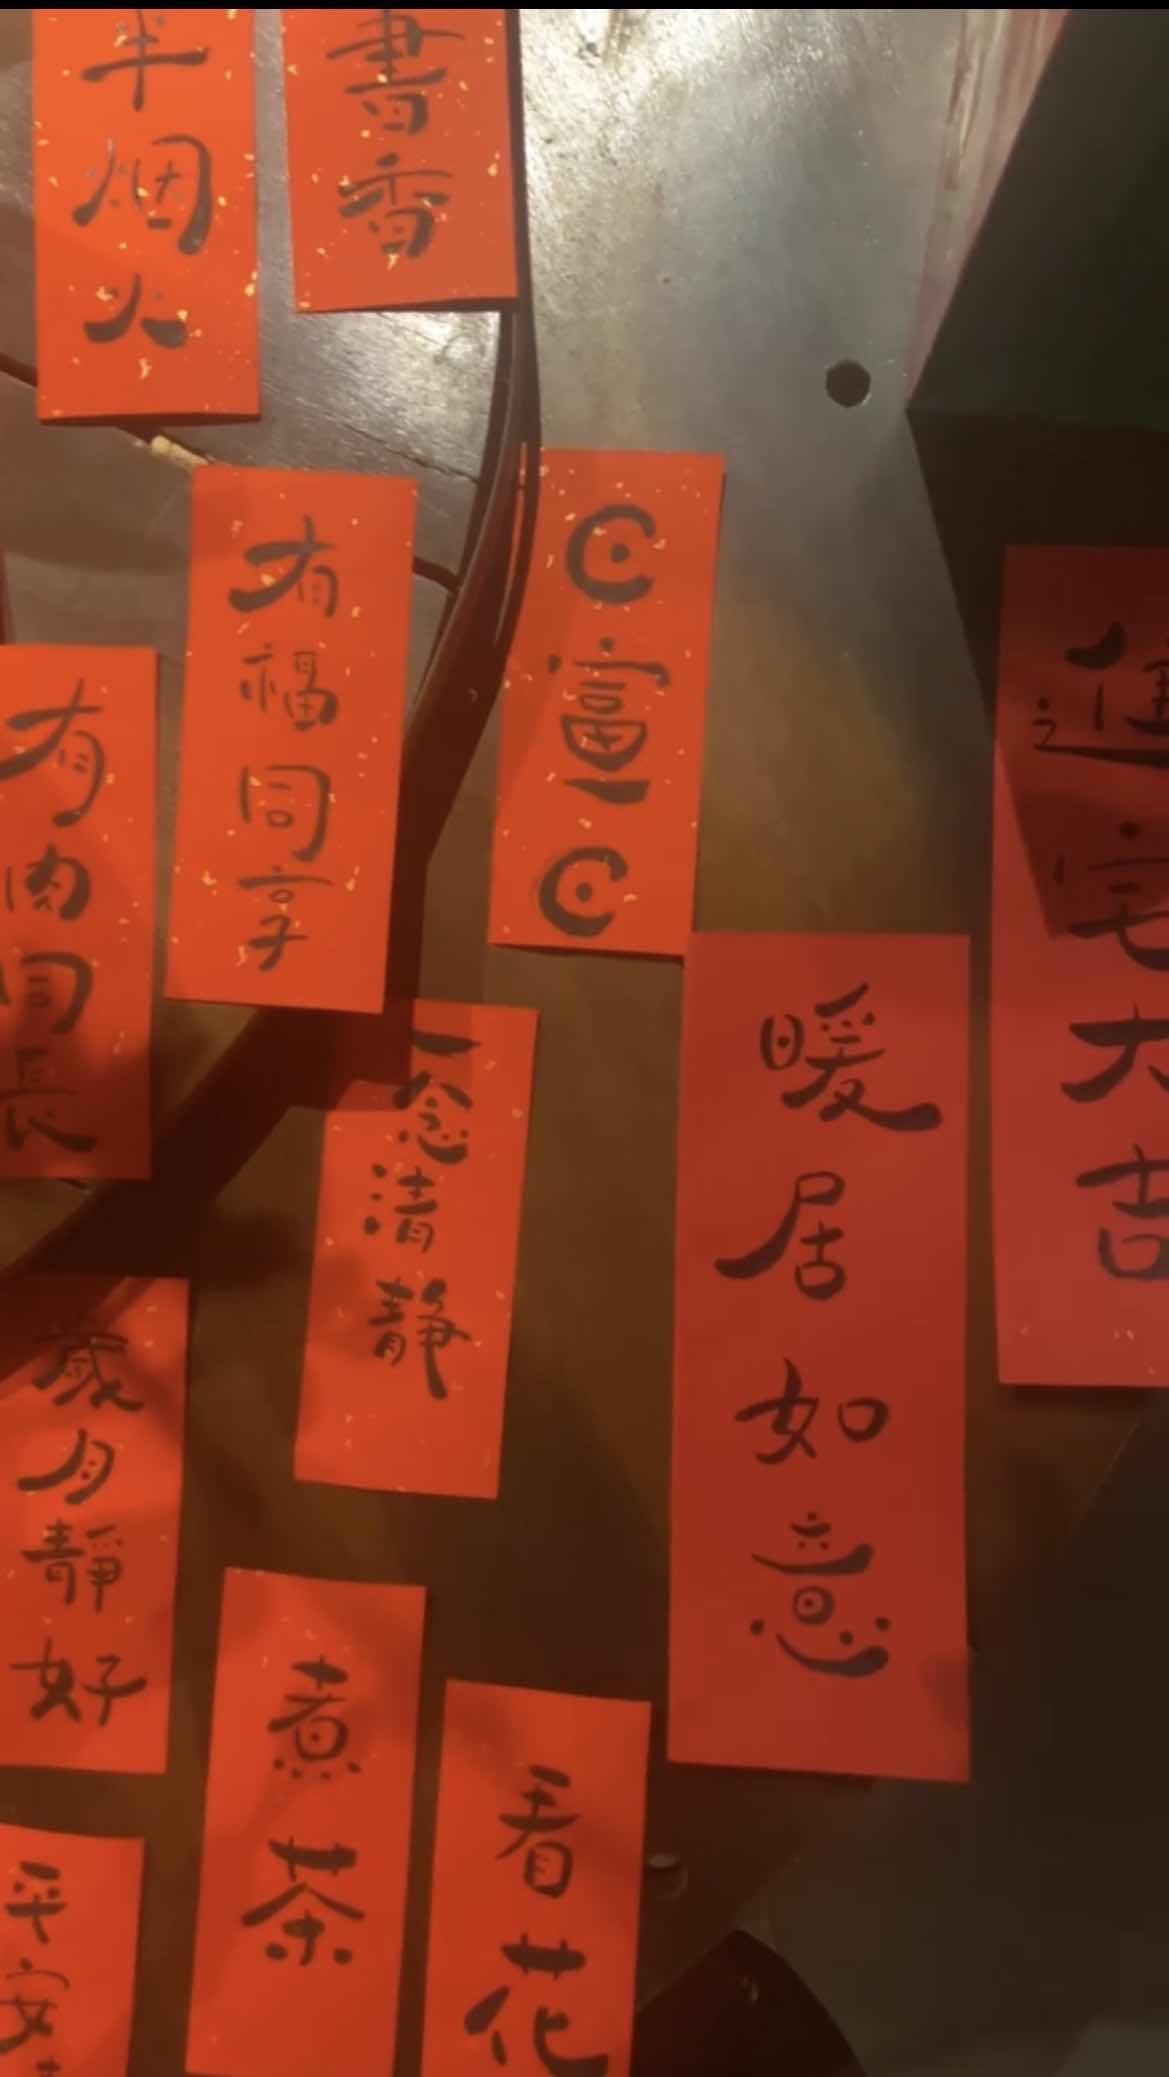 半烟火
書香
有福同享
C富一C
有肉同長
進宅大吉
一念清靜
暖居如意
歲月靜好
煮茶
看花
平安